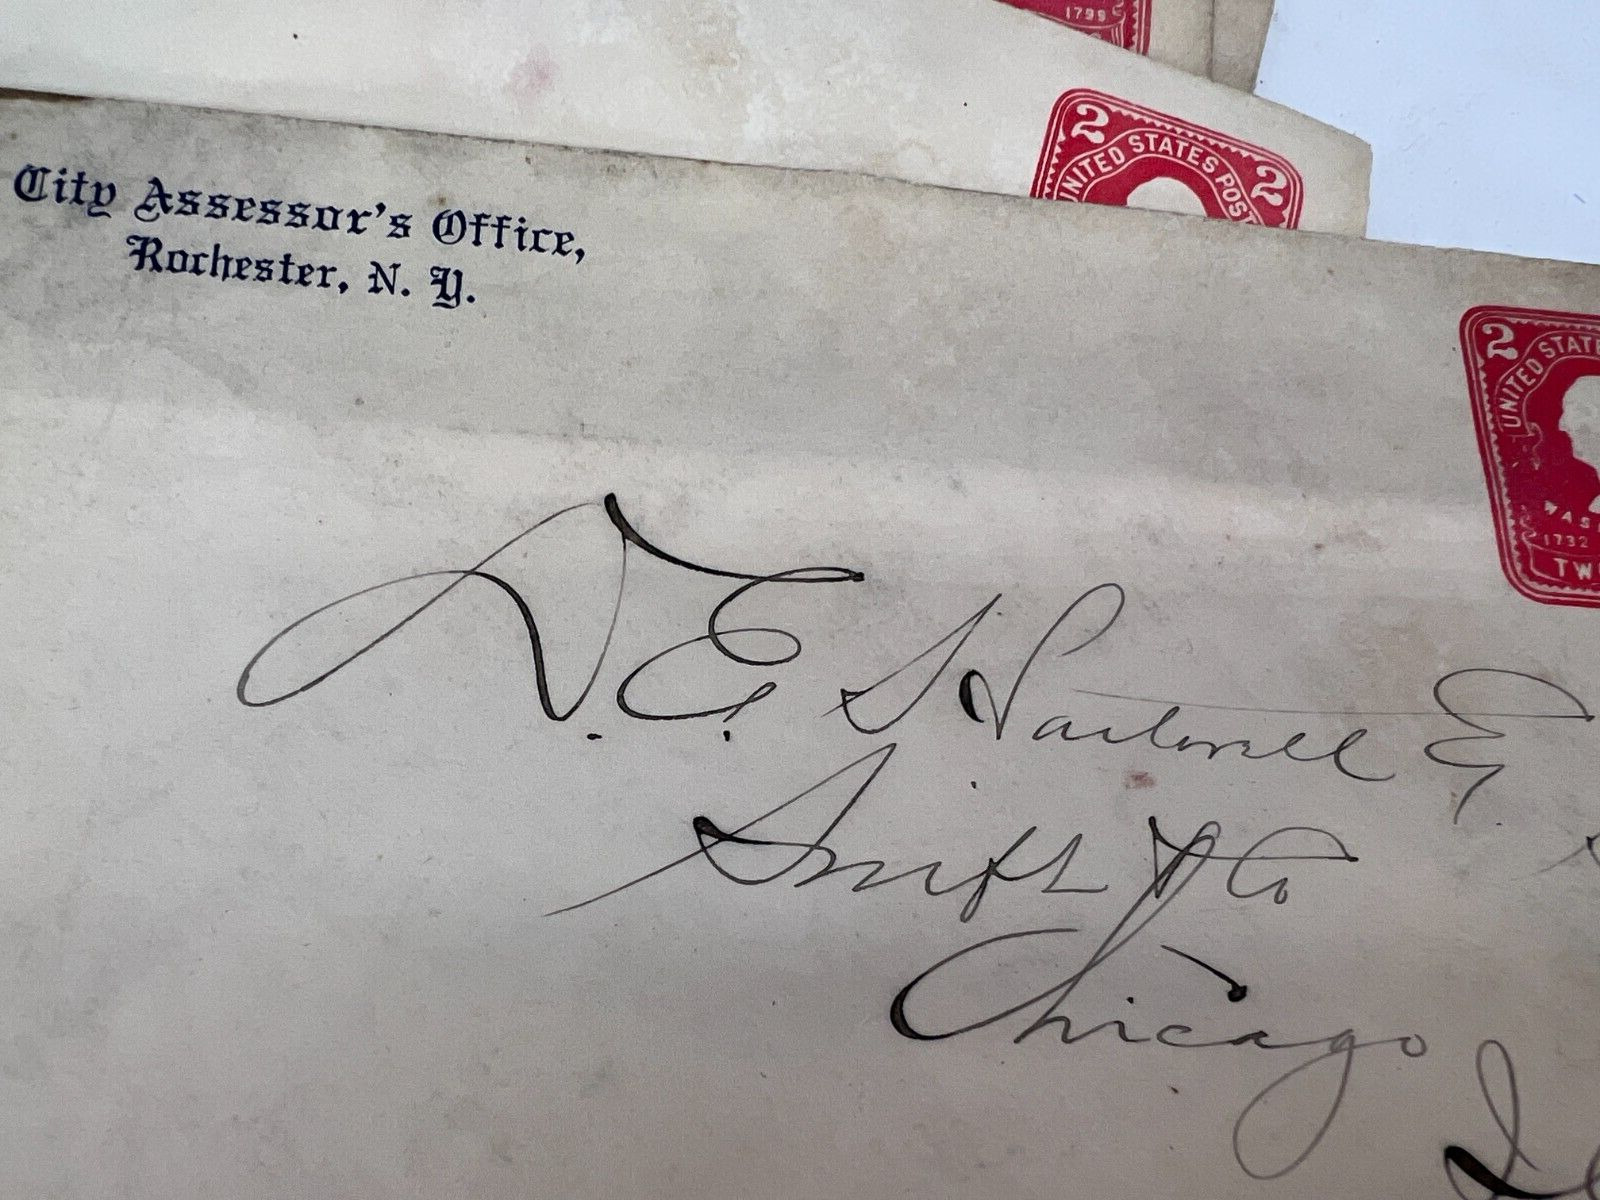 1799
2 UNITED STATES POST 2
City Assessor's Office,
Rochester, N. Y.
2 UNITED STATE
WAS
1732
TW
D. E. Hartwell E
Swift & Co
Chicago